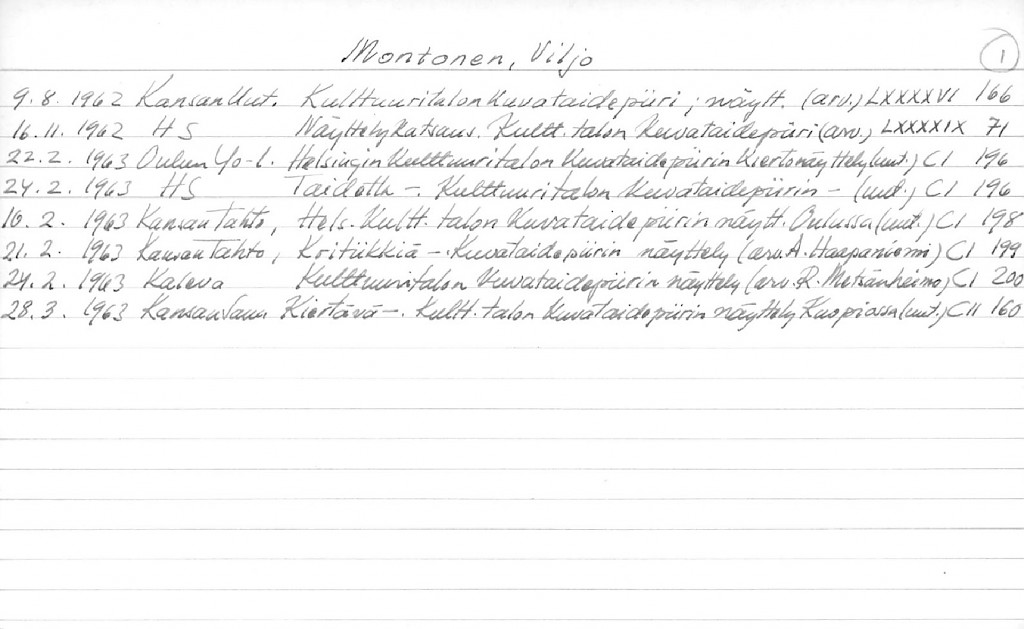 Montonen, Viljo
1
9.8. 1962 Kansan Uut. Kulttuuritalon Kuvataidepiiri; näytt. (arv.) LXXXXVI 166
16.11. 1962 HS Näyttelykatsaus. Kultt.talon Kuvataidepiiri (arv.) LXXXXIX 71
22.2. 1963 Oulun Yo-l. Helsingin Kulttuuritalon Kuvataidepiirin Kiertonäyttely (uut.) CI 196
24.2. 1963 HS Taidetta -. Kulttuuritalon Kuvataidepiirin - (uut.) CI 196
10.2. 1963 Kansan Tahto, Hels. Kultt.talon Kuvataidepiirin näytt. Oulussa (uut.) CI 198
21.2. 1963 Kansan Tahto, Kritiikkiä -. Kuvataidepiirin näyttely (arv. A. Haapaniemi) CI 199
24.2. 1963 Kaleva Kulttuuritalon Kuvataidepiirin näyttely (arv. R. Metsänheimo) CI 200
28.3. 1963 Kansan Sana Kiertävä -. Kultt.talon Kuvataidepiirin näyttely Kuopiossa (uut.) CII 160